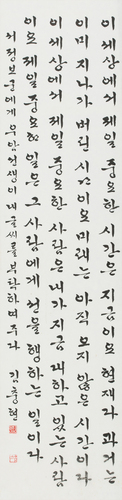 이 세상에서 제일 중요한 시간은 지금이오 현재라 과거는
이미 지나가 버린 시간이오 미래는 아직 오지 않은 시간이라
이 세상에서 제일 중요한 사람은 내가 지금 대하고 있는 사람
이오 제일 중요한 일은 그 사람에게 선을 행하는 일이라
서정보문에게 우안 선생이 내 글씨를 부탁하여 주다 김충현